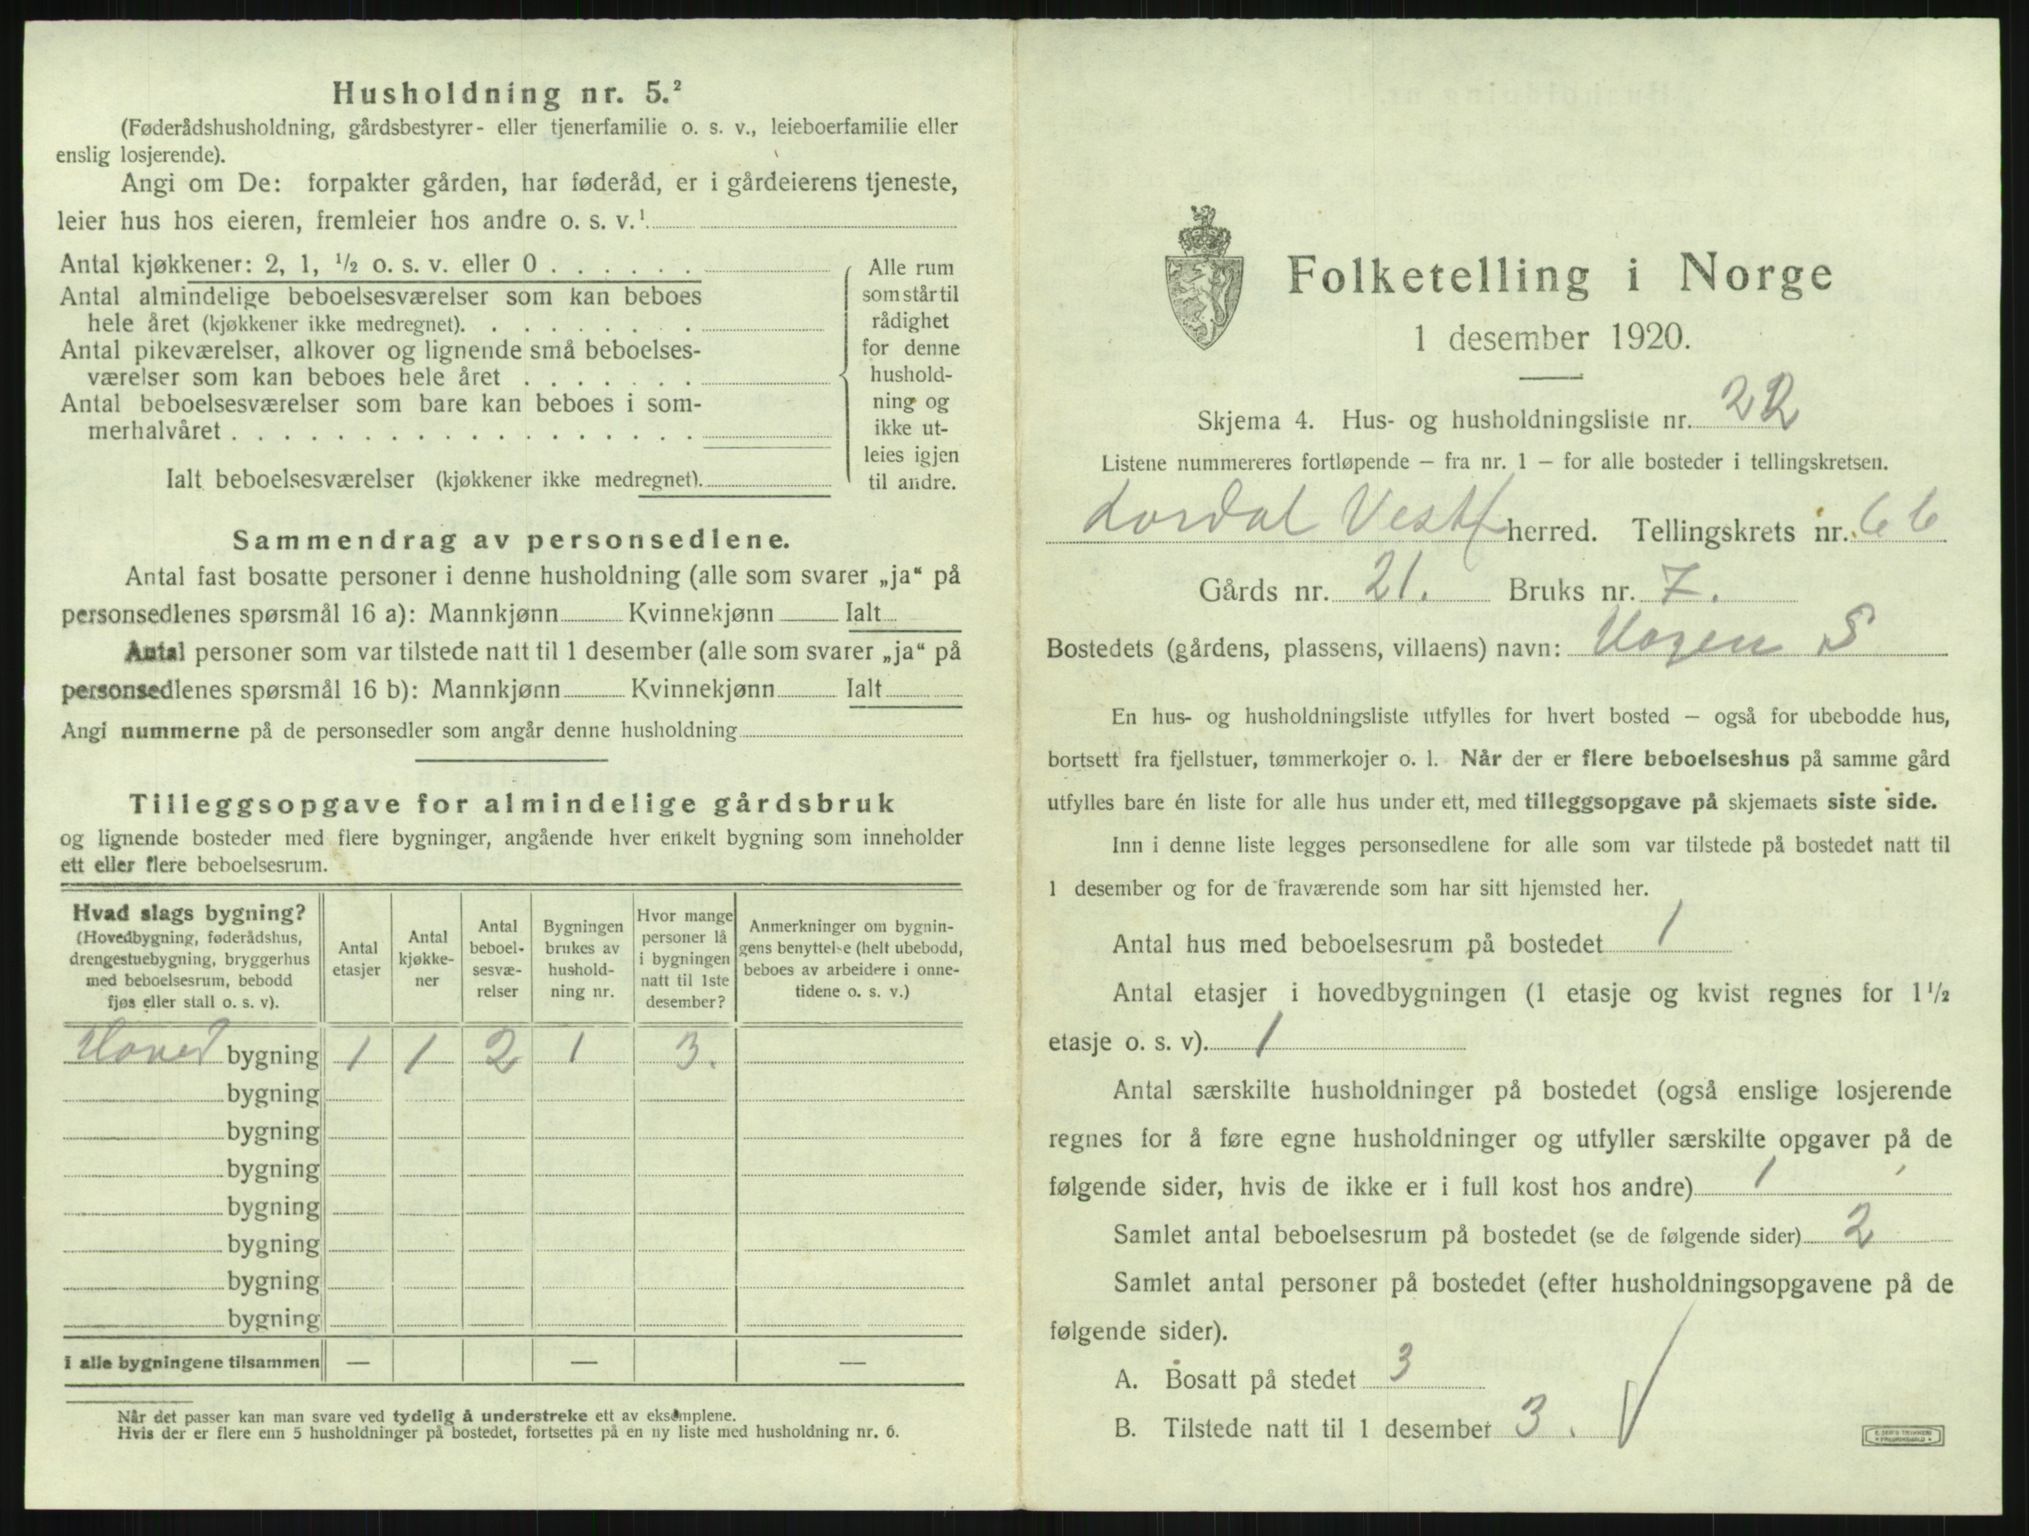 Husholdning nr. 5.²
(Føderådshusholdning, gårdsbestyrer- eller tjenerfamilie o. s. v., leieboerfamilie eller
enslig losjerende).
Angi om De: forpakter gården, har føderåd, er i gårdeierens tjeneste,
leier hus hos eieren, fremleier hos andre o. s. v.¹
Antal kjøkkener: 2, 1, ½ o. s. v. eller 0 . . . . . .
Antal almindelige beboelsesværelser som kan beboes
hele året (kjøkkener ikke medregnet). . . . . . . .
Antal pikeværelser, alkover og lignende små beboelses-
værelser som kan beboes hele året . . . . . . .
Antal beboelsesværelser som bare kan beboes i som-
merhalvåret . . . . . . . . . . . . . . . . . .
Ialt beboelsesværelser (kjøkkener ikke medregnet).
Alle rum
som står til
rådighet
for denne
hushold-
ning og
ikke ut-
leies igjen
til andre.
Sammendrag av personsedlene.
Antal fast bosatte personer i denne husholdning (alle som svarer „ja“ på
personsedlenes spørsmål 16 a): Mannkjønn Kvinnekjønn Ialt
Antal personer som var tilstede natt til 1 desember (alle som svarer „ja“ på
personsedlenes spørsmål 16 b): Mannkjønn Kvinnekjønn Ialt
Angi nummerne på de personsedler som angår denne husholdning
Tilleggsopgave for almindelige gårdsbruk
og lignende bosteder med flere bygninger, angående hver enkelt bygning som inneholder
ett eller flere beboelsesrum.
Hvad slags bygning?
(Hovedbygning, føderådshus,
drengestuebygning, bryggerhus
med beboelsesrum, bebodd
fjøs eller stall o. s. v).
Antal
etasjer
Antal
kjøkke-
ner
Antal
beboel-
sesvæ-
relser
Bygningen
brukes av
hushold-
ning nr.
Hvor mange
personer lå
i bygningen
natt til 1ste
desember?
Anmerkninger om bygnin-
gens benyttelse (helt ubebodd,
beboes av arbeidere i onne-
tidene o. s. v.)
Hoved bygning 1 1 2 1 3.
bygning
bygning
bygning
bygning
bygning
bygning
bygning
I alle bygningene tilsammen — — —
Når det passer kan man svare ved tydelig å understreke ett av eksemplene.
Hvis der er flere enn 5 husholdninger på bostedet, fortsettes på en ny liste med husholdning nr. 6.
Folketelling i Norge
1 desember 1920.
Skjema 4. Hus- og husholdningsliste nr. 22
Listene nummereres fortløpende — fra nr. 1 — for alle bosteder i tellingskretsen.
Lardal Vestf herred. Tellingskrets nr. 6 6
Gårds nr. 21. Bruks nr. 7.
Bostedets (gårdens, plassens, villaens) navn: Hagen S
En hus- og husholdningsliste utfylles for hvert bosted — også for ubebodde hus,
bortsett fra fjellstuer, tømmerkojer o. l. Når der er flere beboelseshus på samme gård
utfylles bare én liste for alle hus under ett, med tilleggsopgave på skjemaets siste side.
Inn i denne liste legges personsedlene for alle som var tilstede på bostedet natt til
1 desember og for de fraværende som har sitt hjemsted her.
Antal hus med beboelsesrum på bostedet 1
Antal etasjer i hovedbygningen (1 etasje og kvist regnes for 1½
etasje o. s. v). 1
Antal særskilte husholdninger på bostedet (også enslige losjerende
regnes for å føre egne husholdninger og utfyller særskilte opgaver på de
følgende sider, hvis de ikke er i full kost hos andre) 1
Samlet antal beboelsesrum på bostedet (se de følgende sider) 2
Samlet antal personer på bostedet (efter husholdningsopgavene på de
følgende sider).
A. Bosatt på stedet 3
B. Tilstede natt til 1 desember 3.